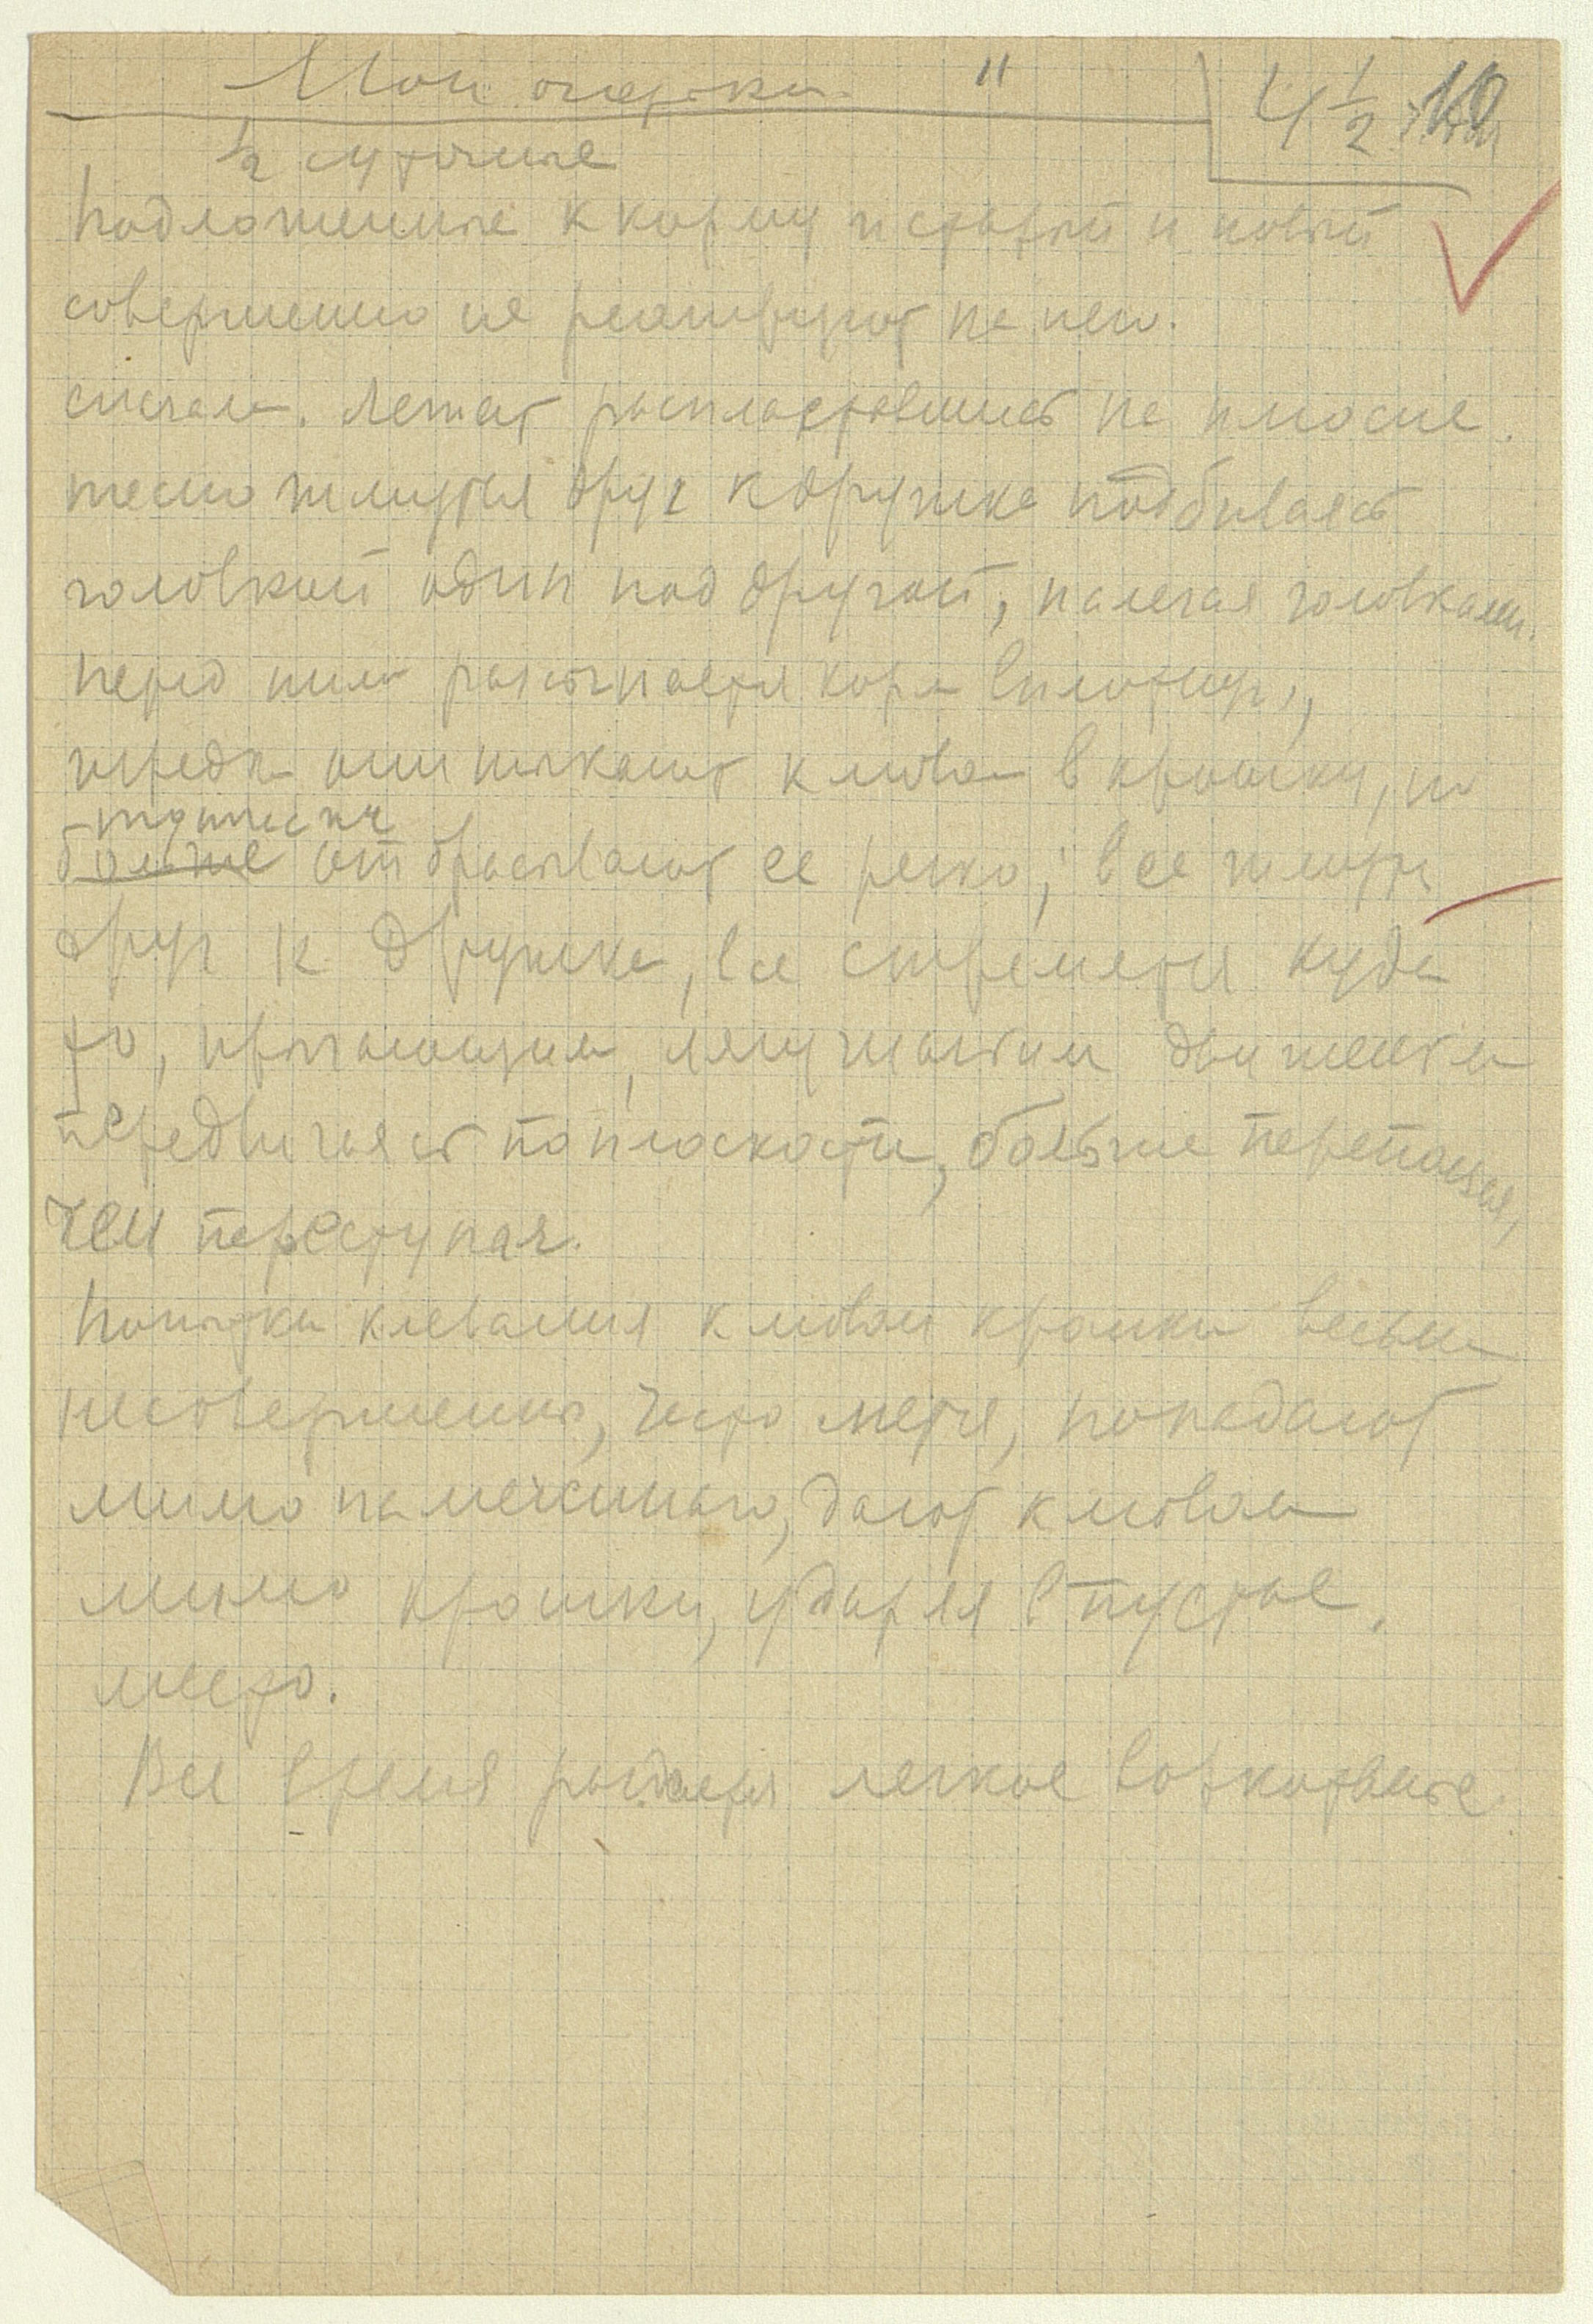 Мои " 4 1/2 10
1/2 суточные
Подложенные к корму и старый и новый
совершенно не реагируют на него.
сначала. Лежат распластавшись на
тесно жмутся друг к дружке подбиваясь
головкой один под другой, налегая головками.
перед ними рассыпается корм вплотную,
изредка они тыкают клювом в крошку, но
больше отбрасывают ее резко; все жмутся
друг к дружке, все стремятся куда
то, прыгающими, лягушачьими движеньями
передвигаясь по плоскости, больше переползая,
чем переступая.
Попытки клевания клювом крошки весьма
несовершенны, часто метя, попадают
мимо намеченного, дают клювом
мимо крошки, ударяя в пустое
место.
Все время раздается легкое